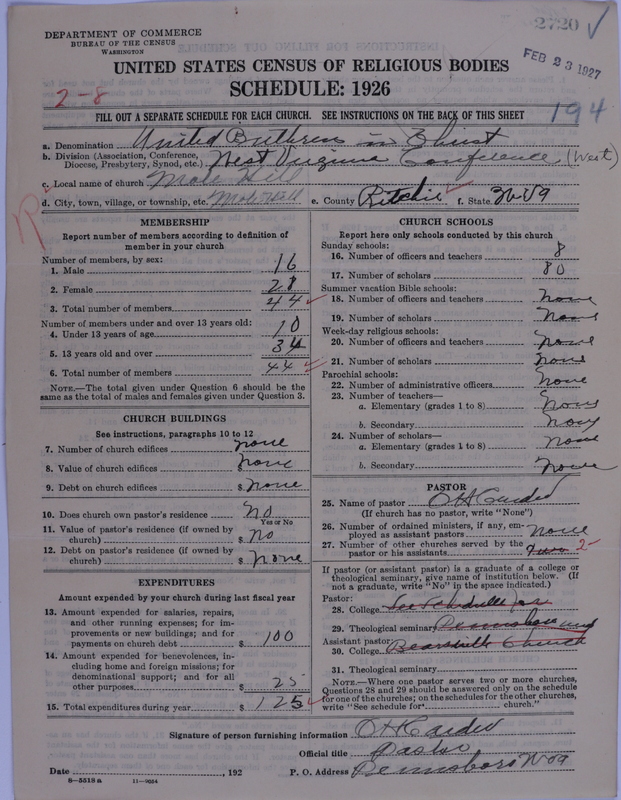 2720 ✓
DEPARTMENT OF COMMERCE
BUREAU OF THE CENSUS
WASHINGTON
FEB 23 1927
UNITED STATES CENSUS OF RELIGIOUS BODIES
SCHEDULE: 1926
2-8
194
FILL OUT A SEPARATE SCHEDULE FOR EACH CHURCH. SEE INSTRUCTIONS ON THE BACK OF THIS SHEET
a. Denomination United Brethren in Christ
b. Division (Association, Conference, Diocese, Presbytery, Synod, etc.) West Virginia Conference (West)
c. Local name of church Mole Hill
d. City, town, village, or township, etc. Mole Hill e. County Ritchie f. State
R
MEMBERSHIP
Report number of members according to definition of
member in your church
Number of members, by sex:
1. Male 16
2. Female 28
3. Total number of members 44
Number of members under and over 13 years old:
4. Under 13 years of age 10
5. 13 years old and over 34
6. Total number of members 44
NOTE.—The total given under Question 6 should be the
same as the total of males and females given under Question 3.
CHURCH BUILDINGS
See instructions, paragraphs 10 to 12
7. Number of church edifices none
8. Value of church edifices none
9. Debt on church edifices $ none
10. Does church own pastor's residence No
Yes or No
11. Value of pastor's residence (if owned by
church) $ No
12. Debt on pastor's residence (if owned by
church) $ none
EXPENDITURES
Amount expended by your church during last fiscal year
13. Amount expended for salaries, repairs,
and other running expenses; for im-
provements or new buildings; and for
payments on church debt $ 100
14. Amount expended for benevolences, in-
cluding home and foreign missions; for
denominational support; and for all
other purposes $ 25
15. Total expenditures during year $ 125
CHURCH SCHOOLS
Report here only schools conducted by this church
Sunday schools:
16. Number of officers and teachers 8
17. Number of scholars 80
Summer vacation Bible schools:
18. Number of officers and teachers none
19. Number of scholars none
Week-day religious schools:
20. Number of officers and teachers none
21. Number of scholars none
Parochial schools:
22. Number of administrative officers none
23. Number of teachers—
a. Elementary (grades 1 to 8) none
b. Secondary none
24. Number of scholars—
a. Elementary (grades 1 to 8) none
b. Secondary none
PASTOR
25. Name of pastor O H Carder
(If church has no pastor, write "None")
26. Number of ordained ministers, if any, em-
ployed as assistant pastors none
27. Number of other churches served by the
pastor or his assistants two 2
If pastor (or assistant pastor) is a graduate of a college or
theological seminary, give name of institution below. (If
not a graduate, write "No" in the space indicated.)
Pastor:
28. College See Schedule for
29. Theological seminary Pennsboro
Assistant pastor:
30. College Church
31. Theological seminary
NOTE.—Where one pastor serves two or more churches,
Questions 28 and 29 should be answered only on the schedule
for one of the churches; on the schedules for the other churches,
write "See schedule for church."
Signature of person furnishing information O H Carder
Official title Pastor
Date , 192 P. O. Address Pennsboro W va
8-5518 a 11-9054